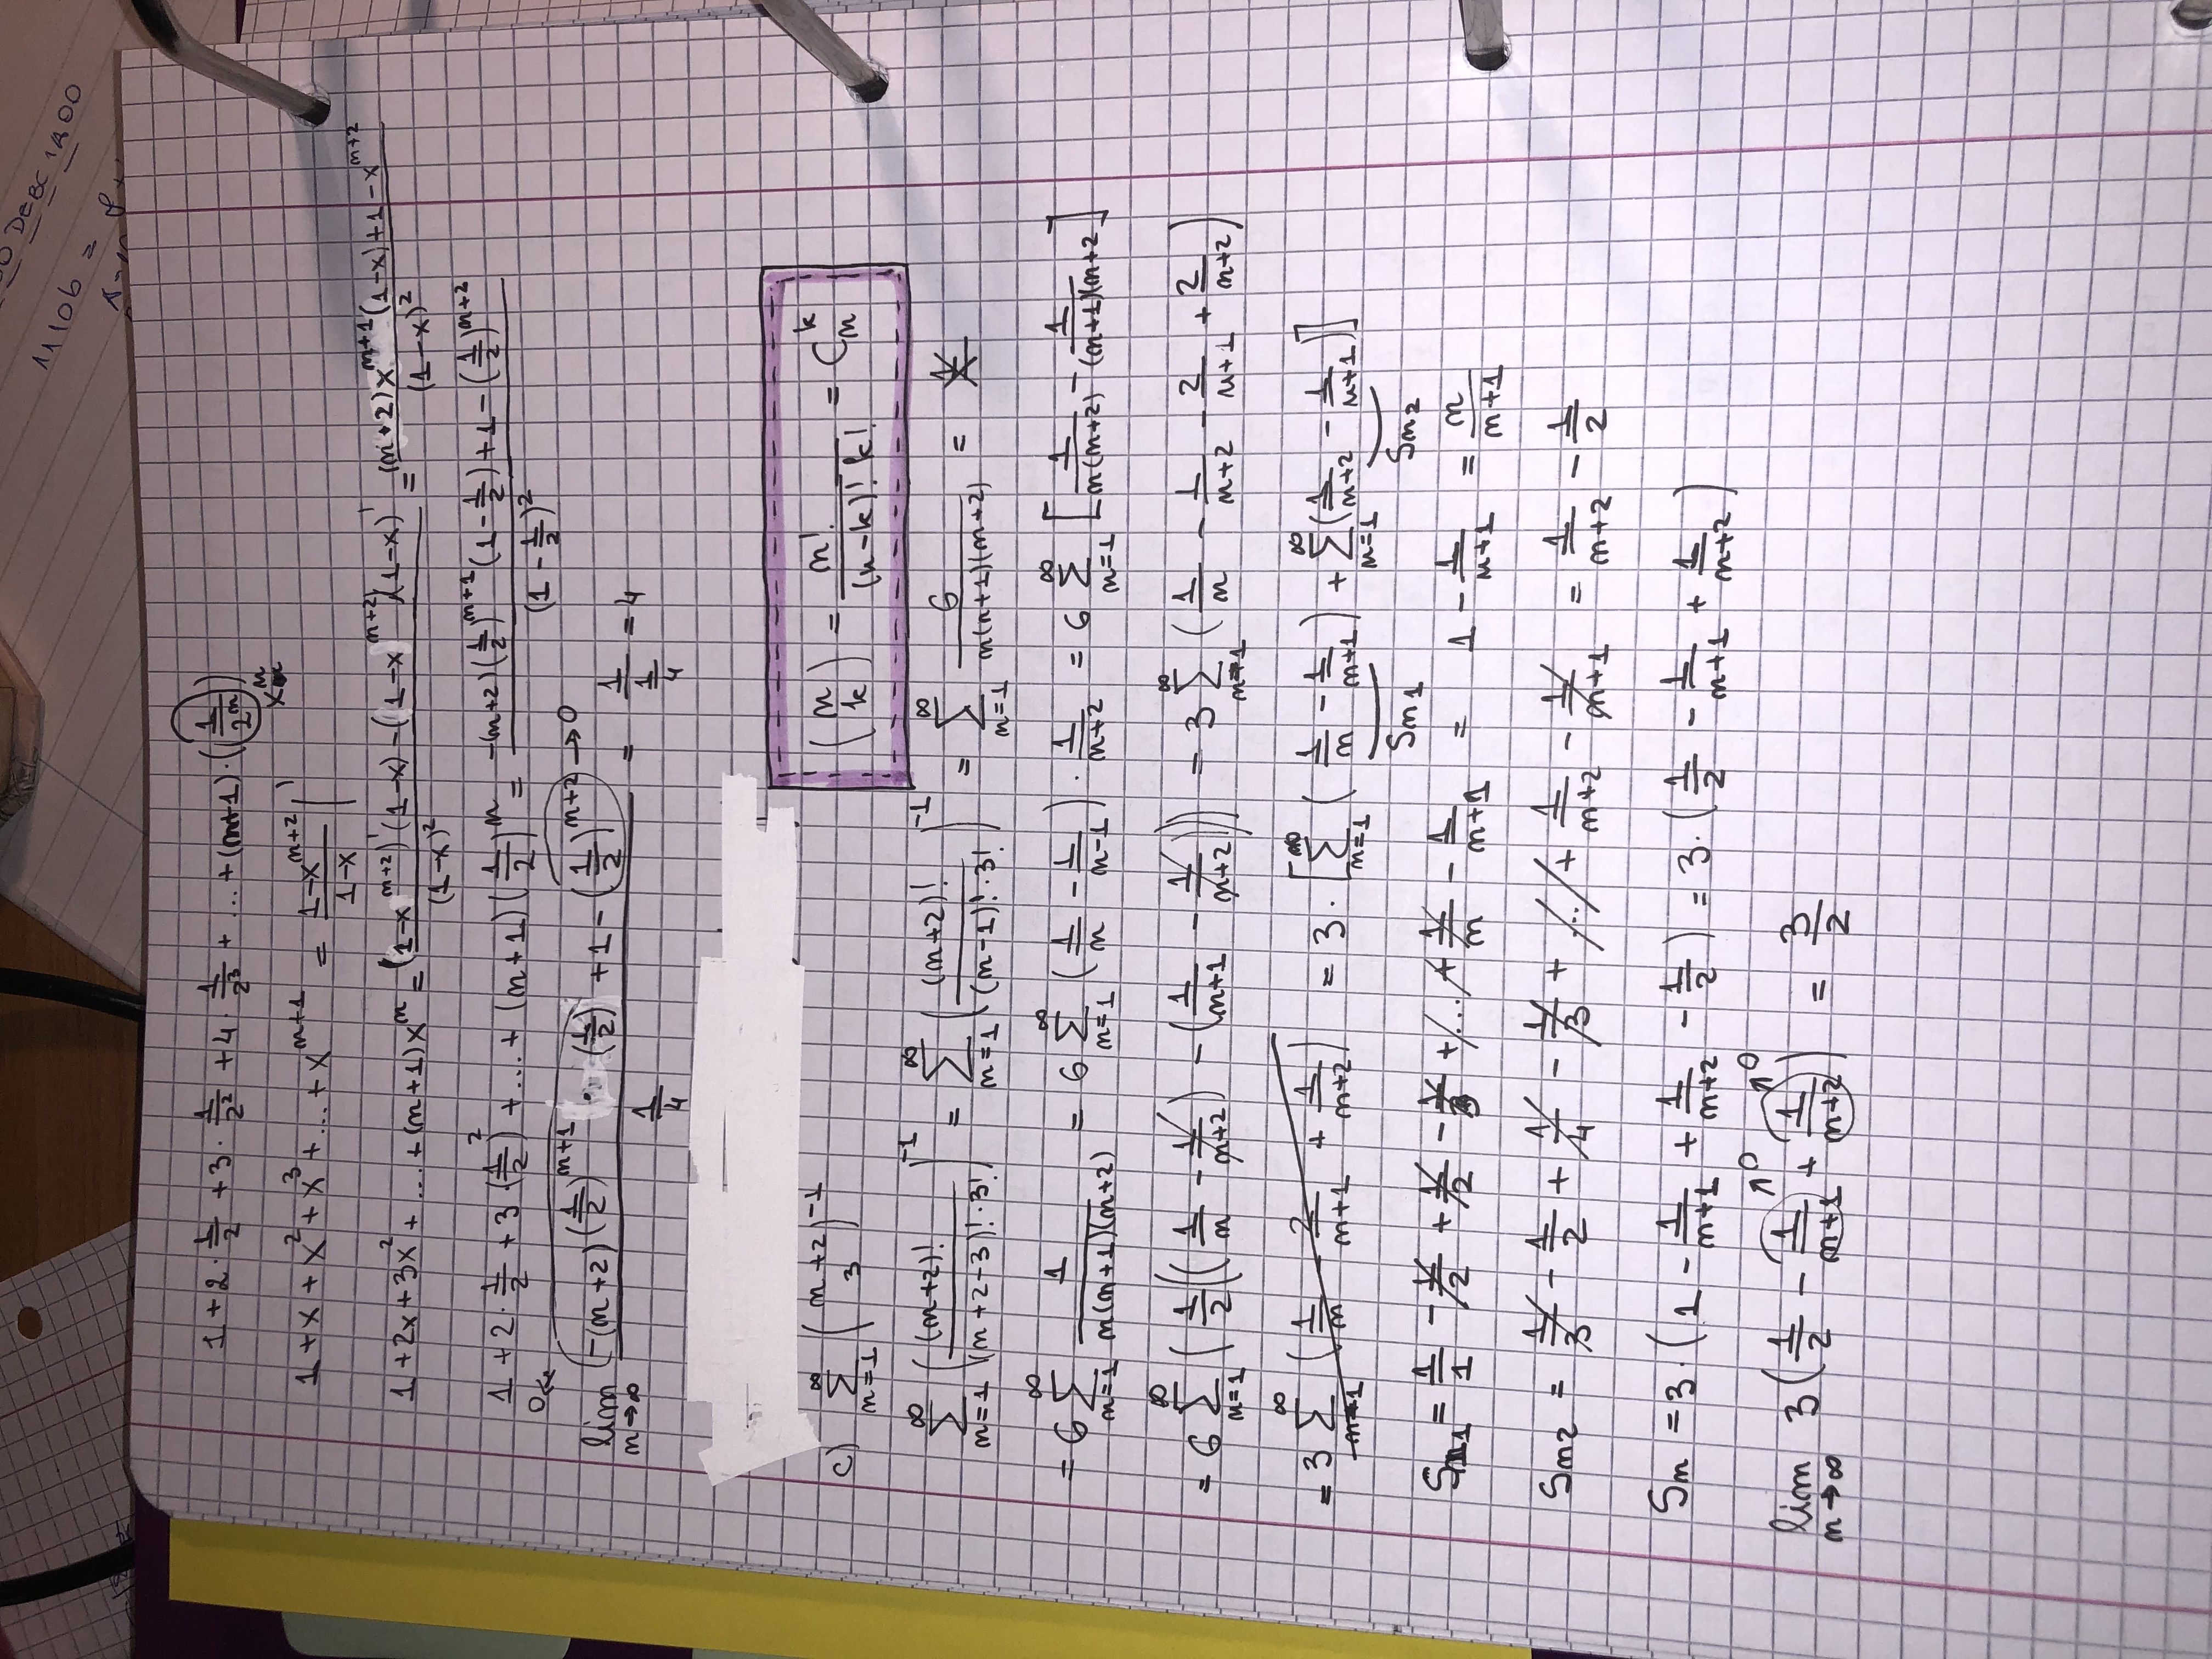 00 DEBC 1A00
1110b =
1 + 2 · 1/2 + 3 · 1/2^2 + 4 · 1/2^3 + ... + (n+1) · (1/2^n)
x^n
1 + x + x^2 + x^3 + ... + x^(n+1) = (1-x^(n+2))/(1-x) |'
1 + 2x + 3x^2 + ... + (n+1)x^n = ((1-x^(n+2))'(1-x) - (1-x^(n+2))(1-x)')/(1-x)^2 = ((n+2)x^(n+1)(1-x)+1-x^(n+2))/(1-x)^2
1 + 2 · 1/2 + 3 · (1/2)^2 + ... + (n+1)(1/2)^n = (-(n+2)(1/2)^(n+1)(1-1/2)+1-(1/2)^(n+2))/(1-1/2)^2
0 ← → 0
lim n→∞ (-(n+2)(1/2)^(n+1) · (1/2) + 1 - (1/2)^(n+2))/(1/4) = 1/(1/4) = 4
c) ∑_{n=1}^∞ (n+2 3)^-1
(n k) = n!/((n-k)! k!) = C_n^k
∑_{n=1}^∞ ((n+2)!/((n+2-3)! · 3!))^-1 = ∑_{n=1}^∞ ((n+2)!/((n-1)! · 3!))^-1 = ∑_{n=1}^∞ 6/(n(n+1)(n+2)) = *
= 6 ∑_{n=1}^∞ 1/(n(n+1)(n+2)) = 6 ∑_{n=1}^∞ (1/n - 1/(n-1)) · 1/(n+2) = 6 ∑_{n=1}^∞ [1/(n(n+2)) - 1/((n+1)(n+2))]
= 6 ∑_{n=1}^∞ (1/2((1/n - 1/(n+2)) - (1/(n+1) - 1/(n+2)))) = 3 ∑_{n=1}^∞ (1/n - 1/(n+2) - 2/(n+1) + 2/(n+2))
= 3 ∑_{n=1}^∞ (1/n - 2/(n+1) + 1/(n+2)) = 3 · [∑_{n=1}^∞ (1/n - 1/(n+1)) + ∑_{n=1}^∞ (1/(n+2) - 1/(n+1))]
Sn1 Sn2
Sn1 = 1/1 - 1/2 + 1/2 - 1/3 + ... + 1/n - 1/(n+1) = 1 - 1/(n+1) = n/(n+1)
Sn2 = 1/3 - 1/2 + 1/4 - 1/3 + ... + 1/(n+2) - 1/(n+1) = 1/(n+2) - 1/2
Sn = 3 · (1 - 1/(n+1) + 1/(n+2) - 1/2) = 3 · (1/2 - 1/(n+1) + 1/(n+2))
↗0 ↗0
lim n→∞ 3(1/2 - 1/(n+1) + 1/(n+2)) = 3/2